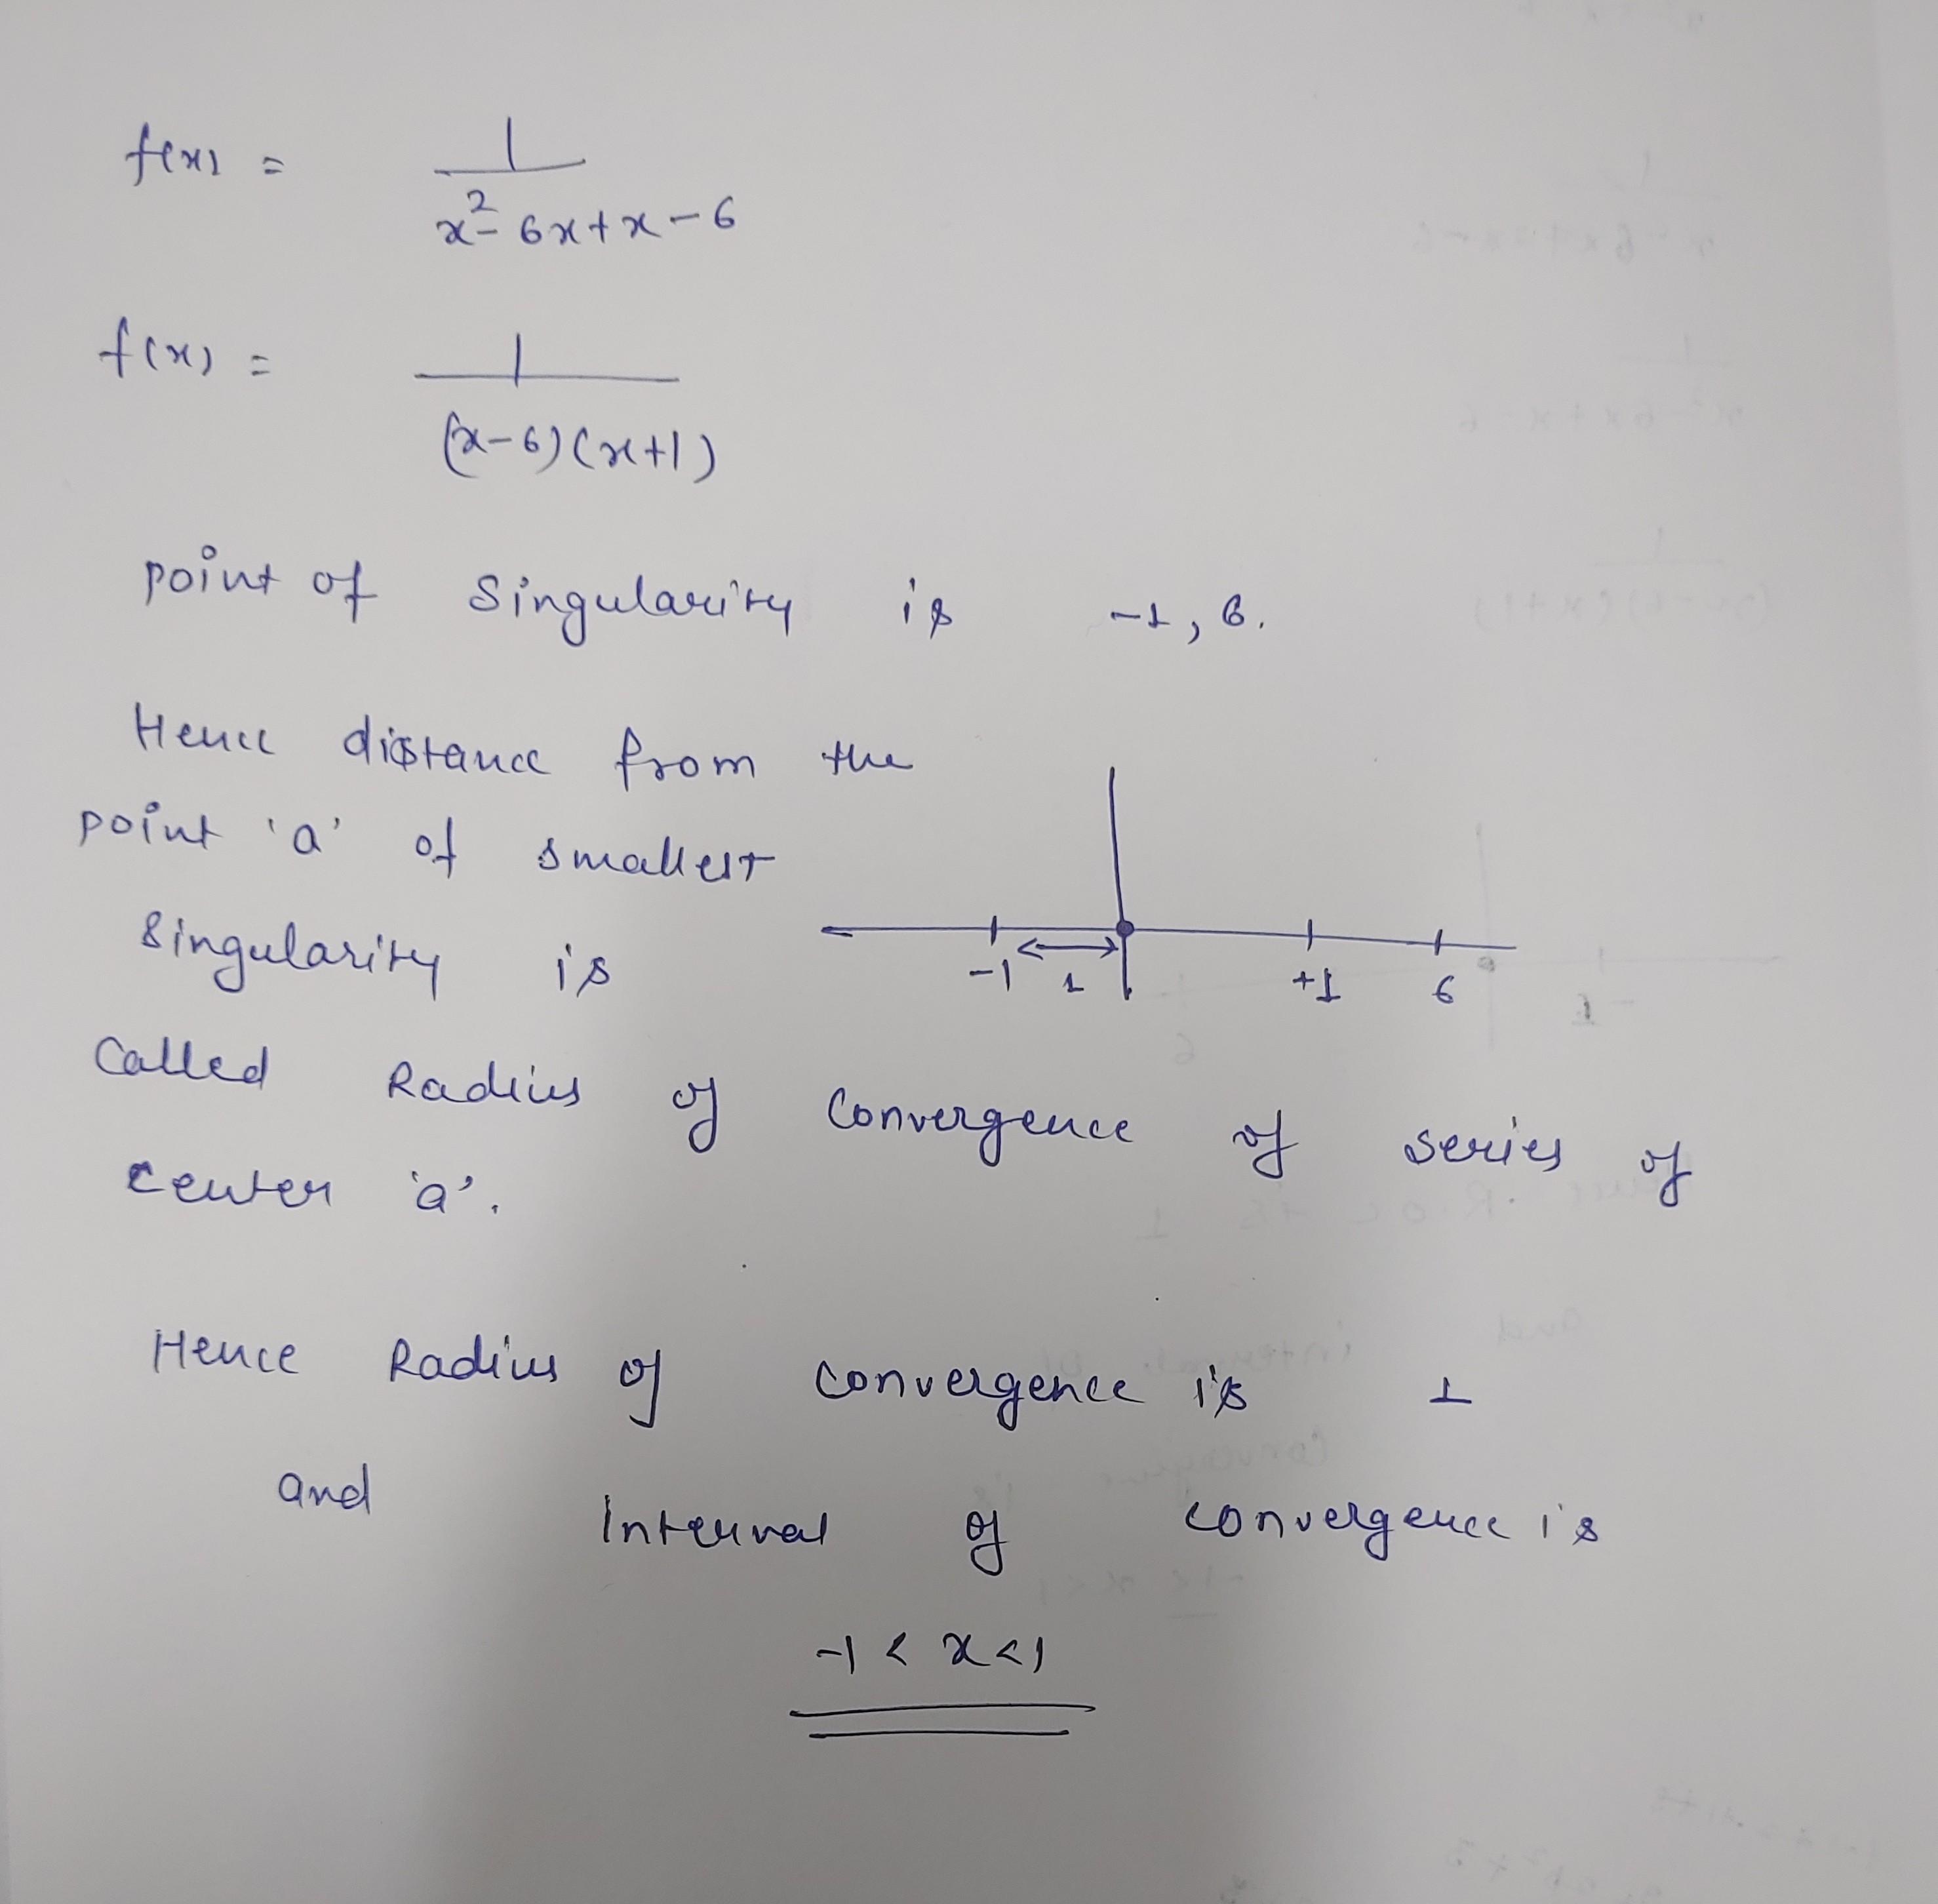 f(x) = 1
x² - 6x + x - 6
f(x) = 1
(x-6)(x+1)
point of Singularity is -1, 6.
Hence distance from the
point 'a' of smallest
Singularity is
-1 1 +1 6
Called Radius of Convergence of series of
center 'a'.
Hence Radius of convergence is 1
and
Interval of convergence is
-1 < x < 1